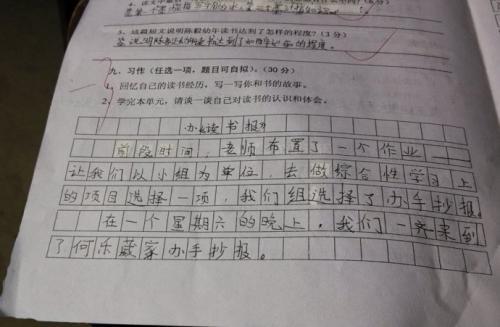 5、这篇短文说明陈毅幼年读书达到了怎样的程度？(3分)
答：说明陈毅幼年读书达到了如醉如痴的程度。
九、习作（任选一项，题目可自拟）。(30分)
1、回忆自己的读书经历，写一写你和书的故事。
2、学完本单元，请谈一谈自己对读书的认识和体会。
办《读书报》
前段时间，老师布置了一个作业——
让我们以小组为单位，去做综合性学习上
的项目选择一项，我们组选择了办手抄报。
在一个星期六的晚上，我们一齐来到
了何乐葳家办手抄报。